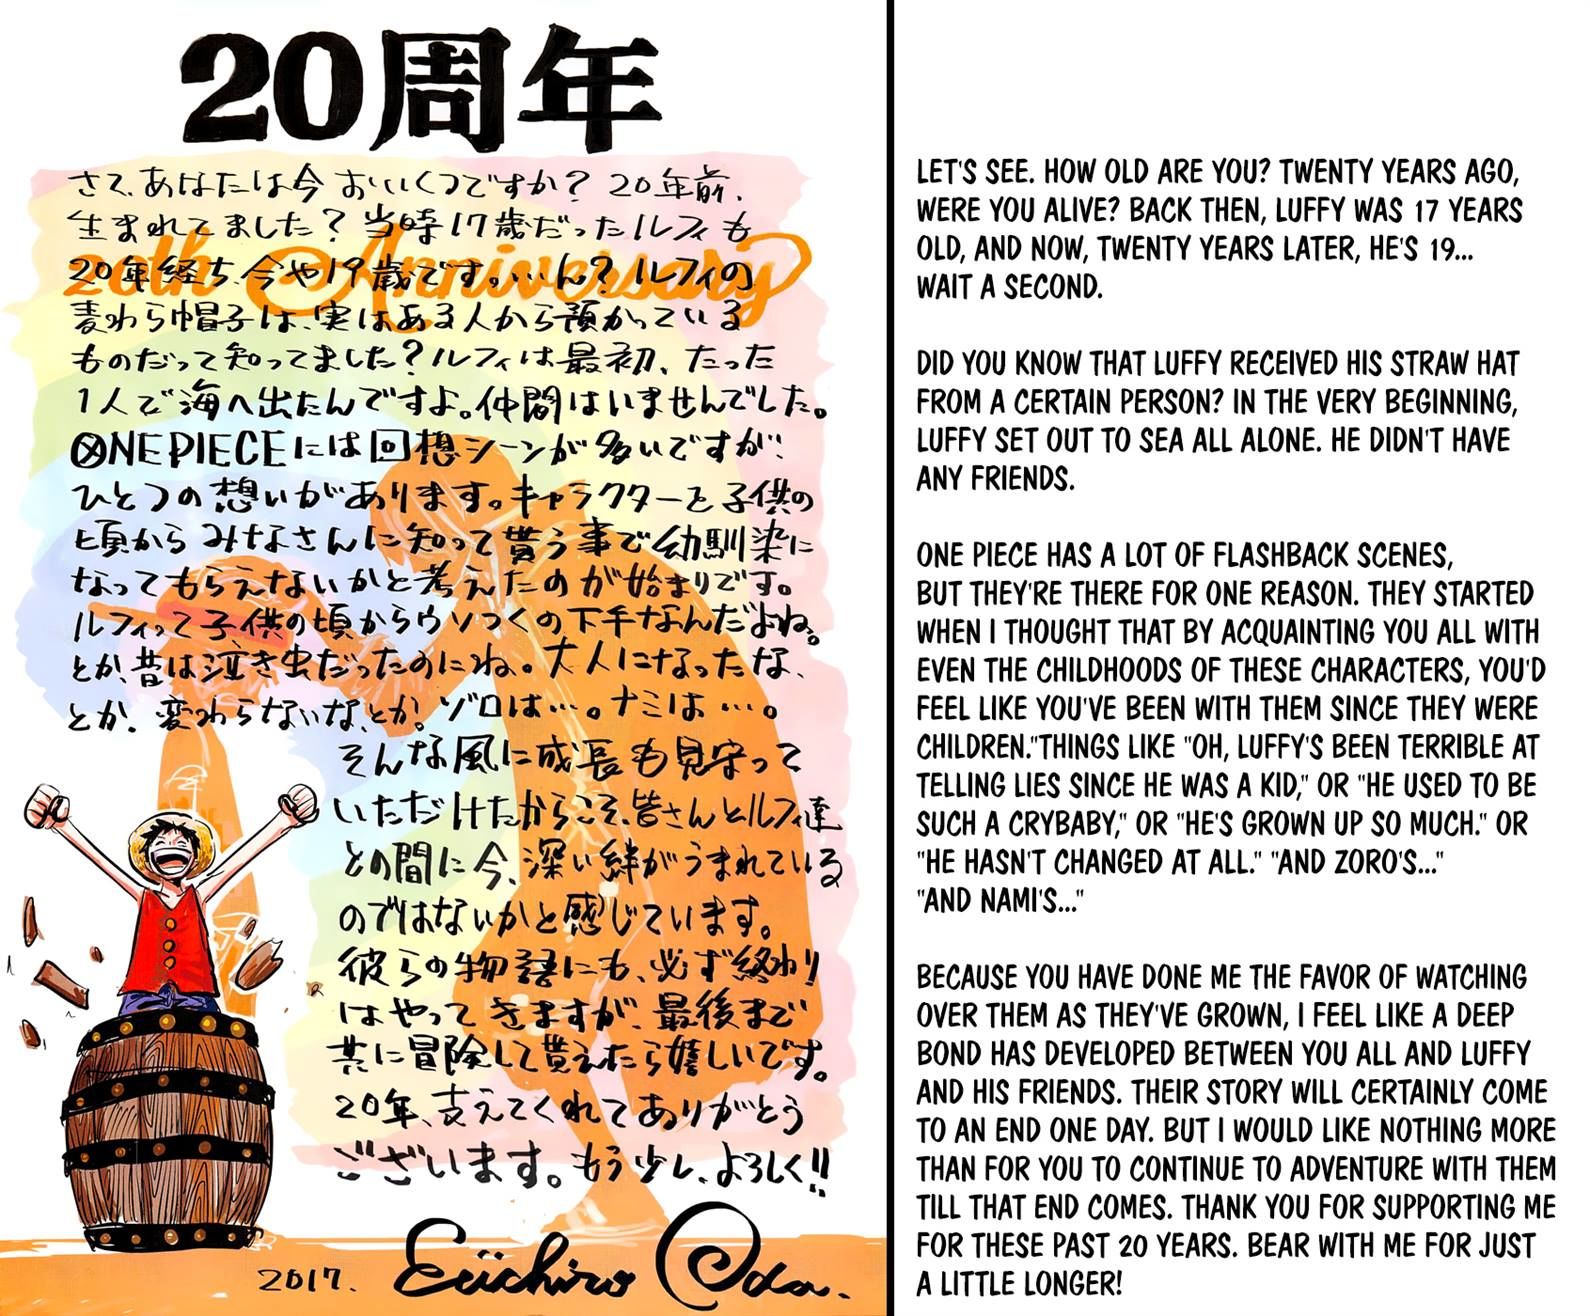 20周年
さて、あなたは今おいくつですか？20年前、
生まれてました？当時17歳だったルフィも
20th Anniversary
20年経ち、今や19歳です。…ん？ルフィの
麦わら帽子は、実はある人から預かっている
ものだって知ってました？ルフィは最初、たった
1人で海へ出たんですよ。仲間はいませんでした。
ONE PIECEには回想シーンが多いですが、
ひとつの想いがあります。キャラクターを子供の
頃からみなさんに知って貰う事で幼馴染に
なってもらえないかと考えたのが始まりです。
ルフィって子供の頃からウソつくの下手なんだよね。
とか、昔は泣き虫だったのにね。大人になったな、
とか、変わらないな、とか。ゾロは…。ナミは…。
そんな風に成長も見守って
いただけたからこそ、皆さんとルフィ達
との間に今、深い絆がうまれている
のではないかと感じています。
彼らの物語にも、必ず終わり
はやってきますが、最後まで
共に冒険して貰えたら嬉しいです。
20年、支えてくれてありがとう
ございます。もう少し、よろしく!!
2017. Eiichiro Oda.
LET'S SEE. HOW OLD ARE YOU? TWENTY YEARS AGO,
WERE YOU ALIVE? BACK THEN, LUFFY WAS 17 YEARS
OLD, AND NOW, TWENTY YEARS LATER, HE'S 19...
WAIT A SECOND.
DID YOU KNOW THAT LUFFY RECEIVED HIS STRAW HAT
FROM A CERTAIN PERSON? IN THE VERY BEGINNING,
LUFFY SET OUT TO SEA ALL ALONE. HE DIDN'T HAVE
ANY FRIENDS.
ONE PIECE HAS A LOT OF FLASHBACK SCENES,
BUT THEY'RE THERE FOR ONE REASON. THEY STARTED
WHEN I THOUGHT THAT BY ACQUAINTING YOU ALL WITH
EVEN THE CHILDHOODS OF THESE CHARACTERS, YOU'D
FEEL LIKE YOU'VE BEEN WITH THEM SINCE THEY WERE
CHILDREN."THINGS LIKE "OH, LUFFY'S BEEN TERRIBLE AT
TELLING LIES SINCE HE WAS A KID," OR "HE USED TO BE
SUCH A CRYBABY," OR "HE'S GROWN UP SO MUCH." OR
"HE HASN'T CHANGED AT ALL." "AND ZORO'S..."
"AND NAMI'S..."
BECAUSE YOU HAVE DONE ME THE FAVOR OF WATCHING
OVER THEM AS THEY'VE GROWN, I FEEL LIKE A DEEP
BOND HAS DEVELOPED BETWEEN YOU ALL AND LUFFY
AND HIS FRIENDS. THEIR STORY WILL CERTAINLY COME
TO AN END ONE DAY. BUT I WOULD LIKE NOTHING MORE
THAN FOR YOU TO CONTINUE TO ADVENTURE WITH THEM
TILL THAT END COMES. THANK YOU FOR SUPPORTING ME
FOR THESE PAST 20 YEARS. BEAR WITH ME FOR JUST
A LITTLE LONGER!